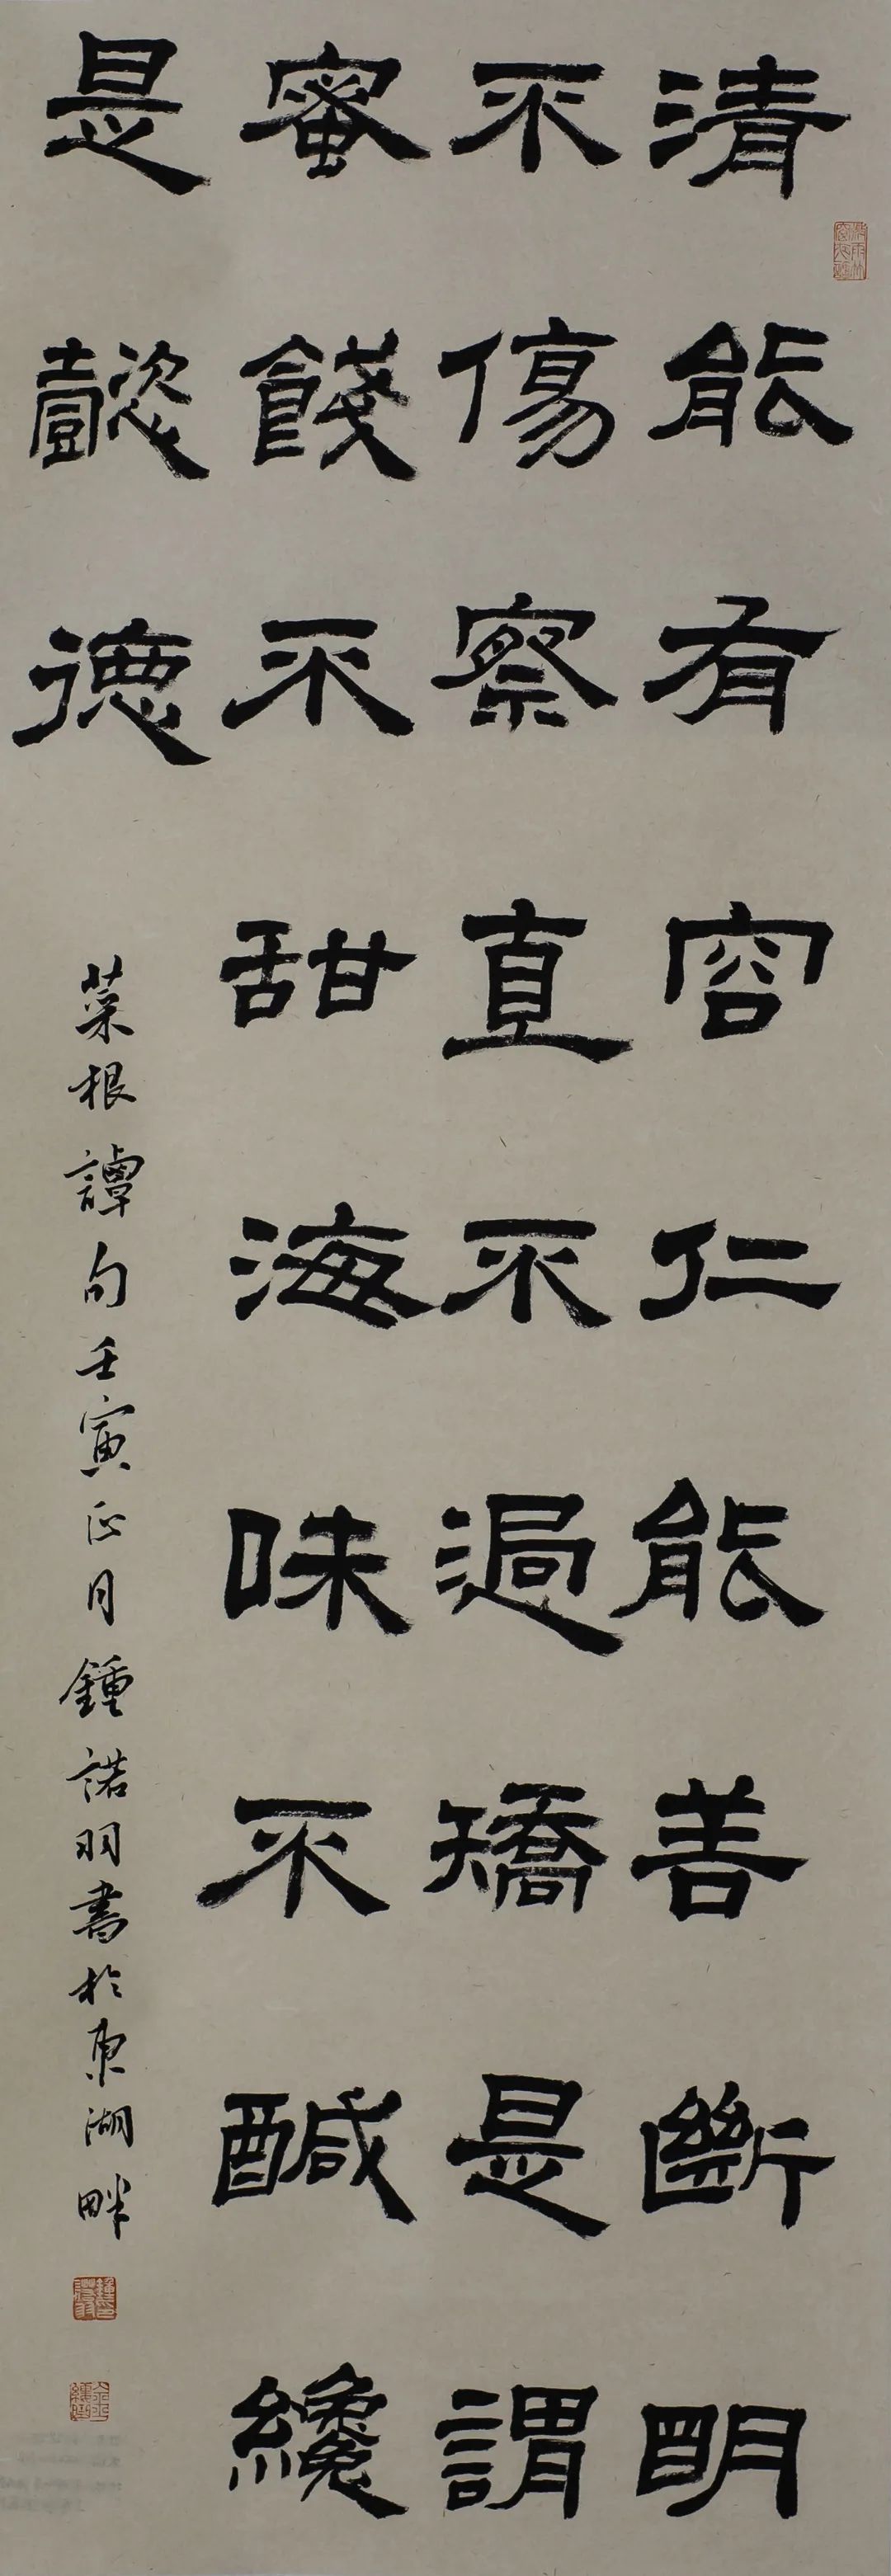 清能有容仁能善斷明
不傷察直不過矯是謂
蜜餞不甜海味不醎纔
是懿德
菜根譚句壬寅正月鍾諾羽書於東湖畔